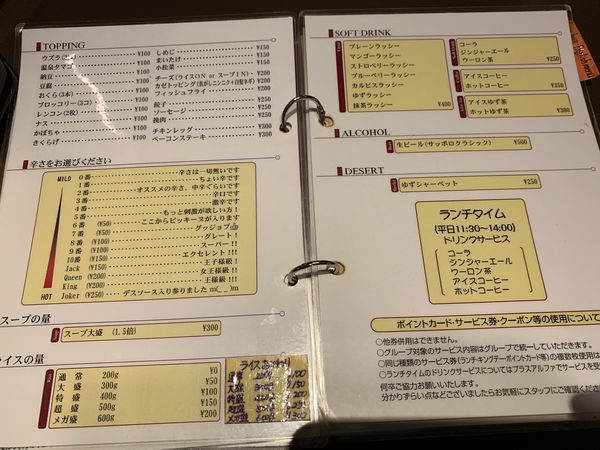 TOPPING
温泉タマゴ ¥100
納豆 ¥100
豆腐 ¥100
おくら(3本) ¥100
ブロッコリー(3コ) ¥100
レンコン(2枚) ¥100
ナス ¥100
かぼちゃ ¥100
きくらげ ¥100
しめじ ¥150
まいたけ ¥150
小松菜 ¥150
チーズ(ライスON or スープIN) ¥200
フィッシュフライ ¥200
餃子
ソーセージ
挽肉
チキンレッグ ¥300
ベーコンステーキ ¥300
辛さをお選びください
MILD 0番 辛さは一切無いです
1番 ちょい辛です
2番 オススメの辛さ、中辛ぐらいです
3番 辛口です
4番 激辛です
5番 もっと刺激が欲しい方!
6番 (¥50) ここからピッキーヌが入ります
7番 (¥50) グッジョブ
8番 (¥100) グレート!
9番 (¥100) スーパー!!
10番 (¥150) エクセレント!!!
Jack (¥150) 王子様級!
Queen (¥200) 女王様級!!
King (¥200) 王様級!!!
HOT Joker (¥250) デスソース入り参りました m(_ _)m
スープの量
スープ大盛 (1.5倍) ¥300
ライスの量
通常 200g ¥0
大盛 300g ¥50
特盛 400g ¥100
超盛 500g ¥150
メガ盛 600g ¥200
SOFT DRINK
プレーンラッシー
マンゴーラッシー
ストロベリーラッシー
ブルーベリーラッシー
カルピスラッシー
ゆずラッシー
抹茶ラッシー ¥400
コーラ
ジンジャーエール
ウーロン茶 ¥250
アイスコーヒー
ホットコーヒー ¥250
アイスゆず茶
ホットゆず茶 ¥300
ALCOHOL
生ビール(サッポロクラシック) ¥500
DESERT
ゆずシャーベット ¥250
ランチタイム
(平日11:30~14:00)
ドリンクサービス
コーラ
ジンジャーエール
ウーロン茶
アイスコーヒー
ホットコーヒー
ポイントカード・サービス券・クーポン等の使用について
○他券併用はできません。
○グループ対象のサービス内容はグループで統一していただきます。
○同じ種類のサービス券(ランチキングデーポイントカード等)の複数枚使用は
○ランチタイムのドリンクサービスについてはプラスアルファでサービスを受
何卒ご協力お願いいたします。
分かりずらい点などございましたらお気軽にスタッフにご確認ください